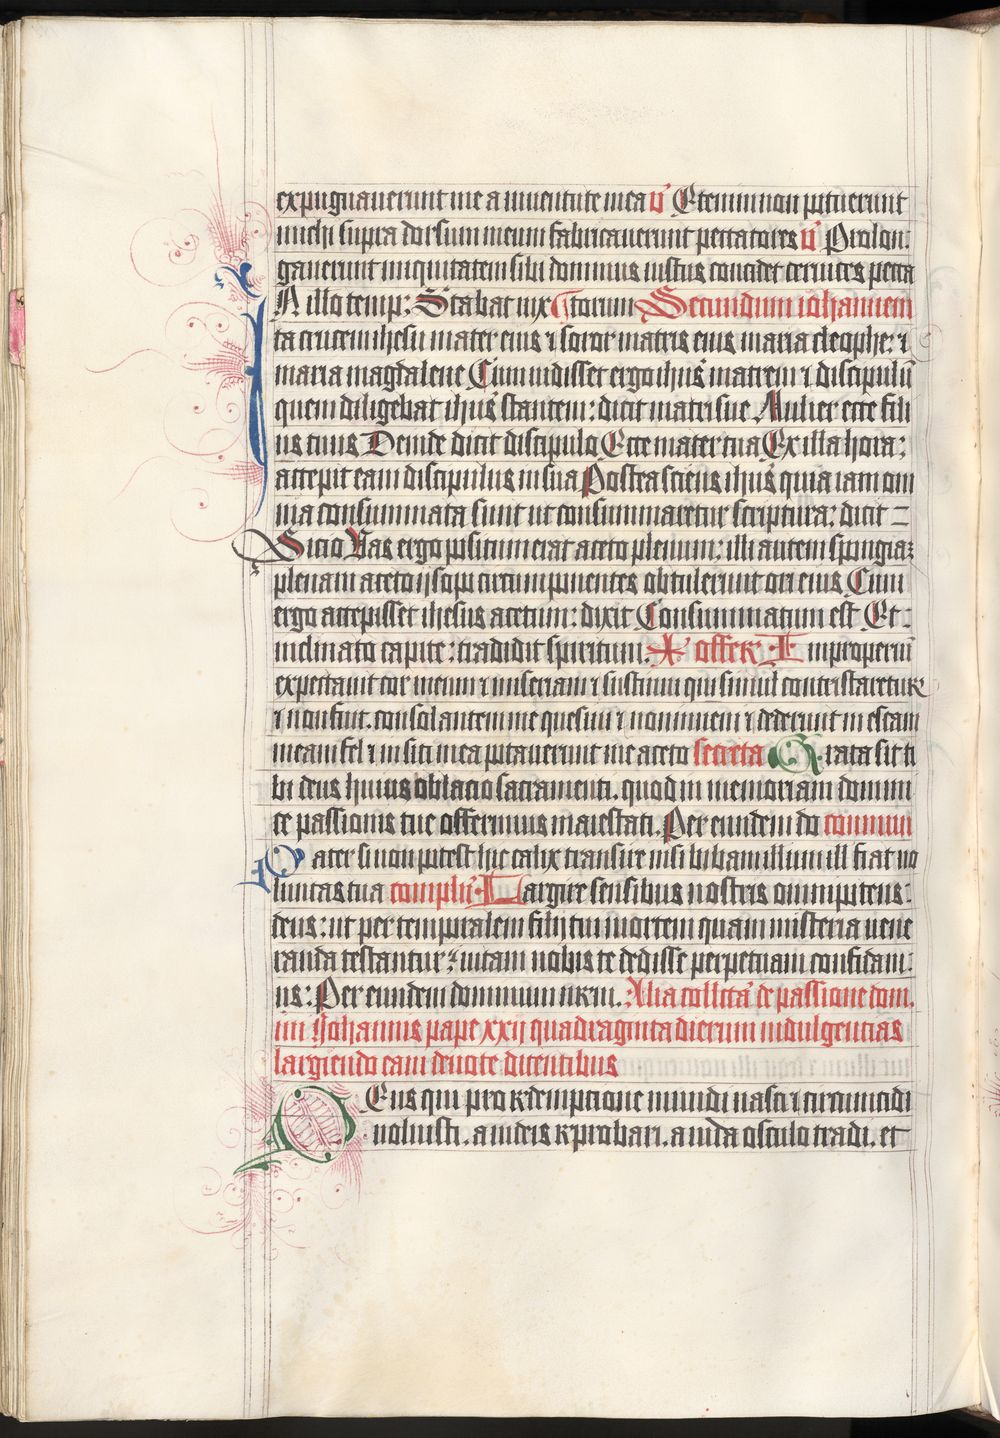 expugnauerunt me a iuuentute mea v̄ Etenim non potuerunt
michi supra dorsum meum fabricauerunt peccatores v̄ Prolon:
gauerunt iniquitatem sibi dominus iustus concidet ceruices pecca
N illo temp: Stabat iux torum Secundum iohannem
ta crucem ihesu mater eius ⁊ soror matris eius maria cleophe: ⁊
maria magdalene Cum uidisset ergo ihūs matrem ⁊ discipulū
quem diligebat ihūs stantem: dicit matri sue Mulier ecce fili
us tuus Deinde dicit discipulo Ecce mater tua Ex illa hora:
accepit eam discipulus in sua Postea sciens ihūs quia iam om
nia consummata sunt ut consummaretur scriptura: dicit =
Sicio Uas ergo positum erat aceto plenum: illi autem spongiaꝫ
plenam aceto ijsopo circumponentes obtulerunt ori eius Cum
ergo accepisset ihesus acetum: dixit Consummatum est Et:
inclinato capite: tradidit spiritum: offer I mproperiū
expectauit cor meum ⁊ miseriam ⁊ sustinui qui simul contristaretur
⁊ non fuit. consolantem me quesiui ⁊ non inueni ⁊ dederunt in escam
meam fel ⁊ in siti mea potauerunt me aceto secreta G rata sit ti
bi deus huius oblacio sacramenti. quod in memoriam domini
ce passionis tue offerimus maiestati. Per eundem do commun
P ater si non potest hic calix transire nisi bibam illum ill fiat uo
luntas tua complū L argire sensibus nostris omnipotens:
deus: ut per temporalem filij tui mortem quam misteria uene
randa testantur: uitam nobis te dedisse perpetuam confidam:
us: Per eundem dominum nrm. Alia collcta de passione dom.
ini Johannis pape xxij quadraginta dierum indulgencias
largiendo eam deuote dicentibus
D Eus qui pro redempcione mundi nasci ⁊ circumcidi
uoluisti. a iudeis reprobari. a iuda osculo tradi. et